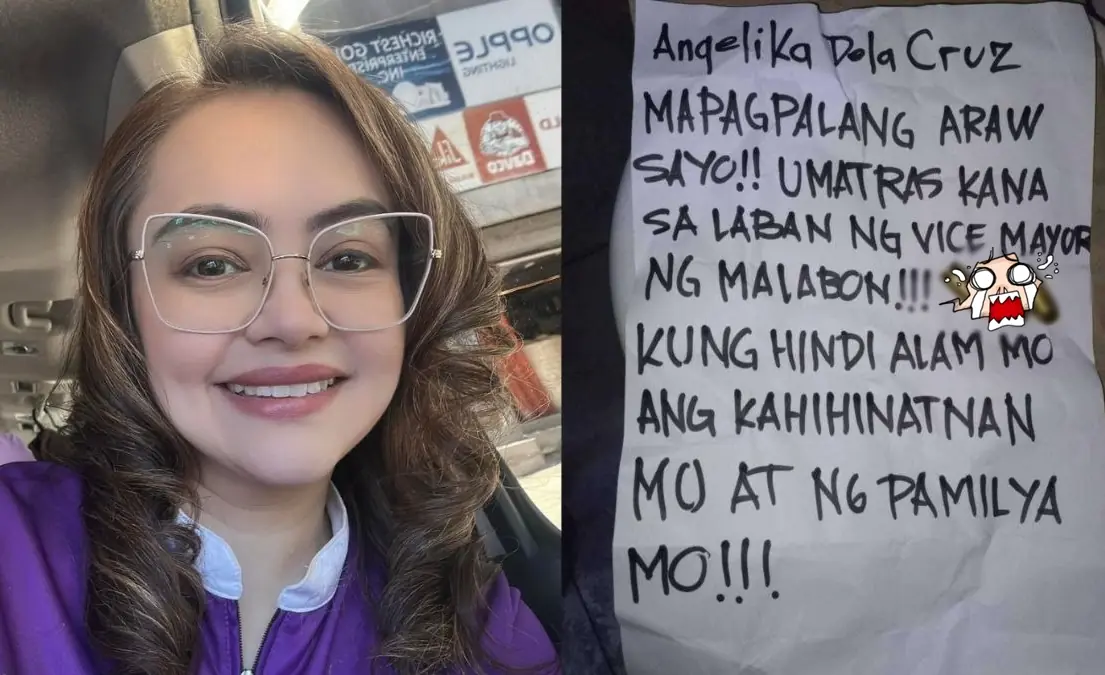 OPPLE
LIGHTING
RICHEST GOL
ENTERPRISE
INC.
DAVCO
LD
Angelika Dela Cruz
MAPAGPALANG ARAW
SAYO!! UMATRAS KANA
SA LABAN NG VICE MAYOR
NG MALABON!!!
KUNG HINDI ALAM MO
ANG KAHIHINATNAN
MO AT NG PAMILYA
MO!!!